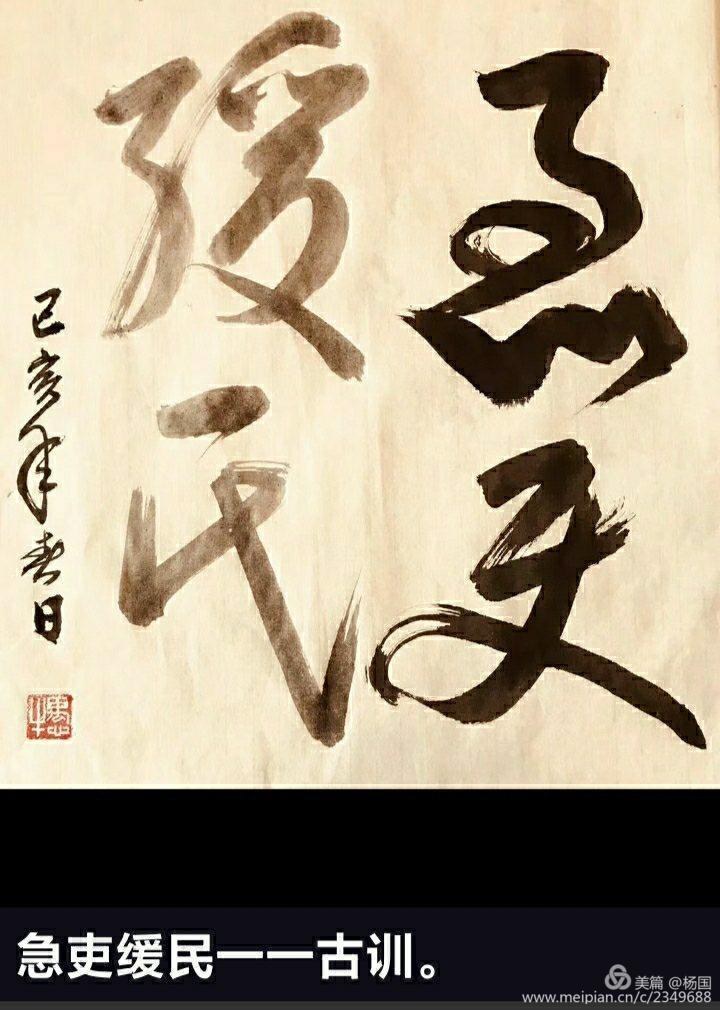 急吏
缓民
己亥年春日
急吏缓民一一古训。
美篇 @杨国
www.meipian.cn/c/2349688